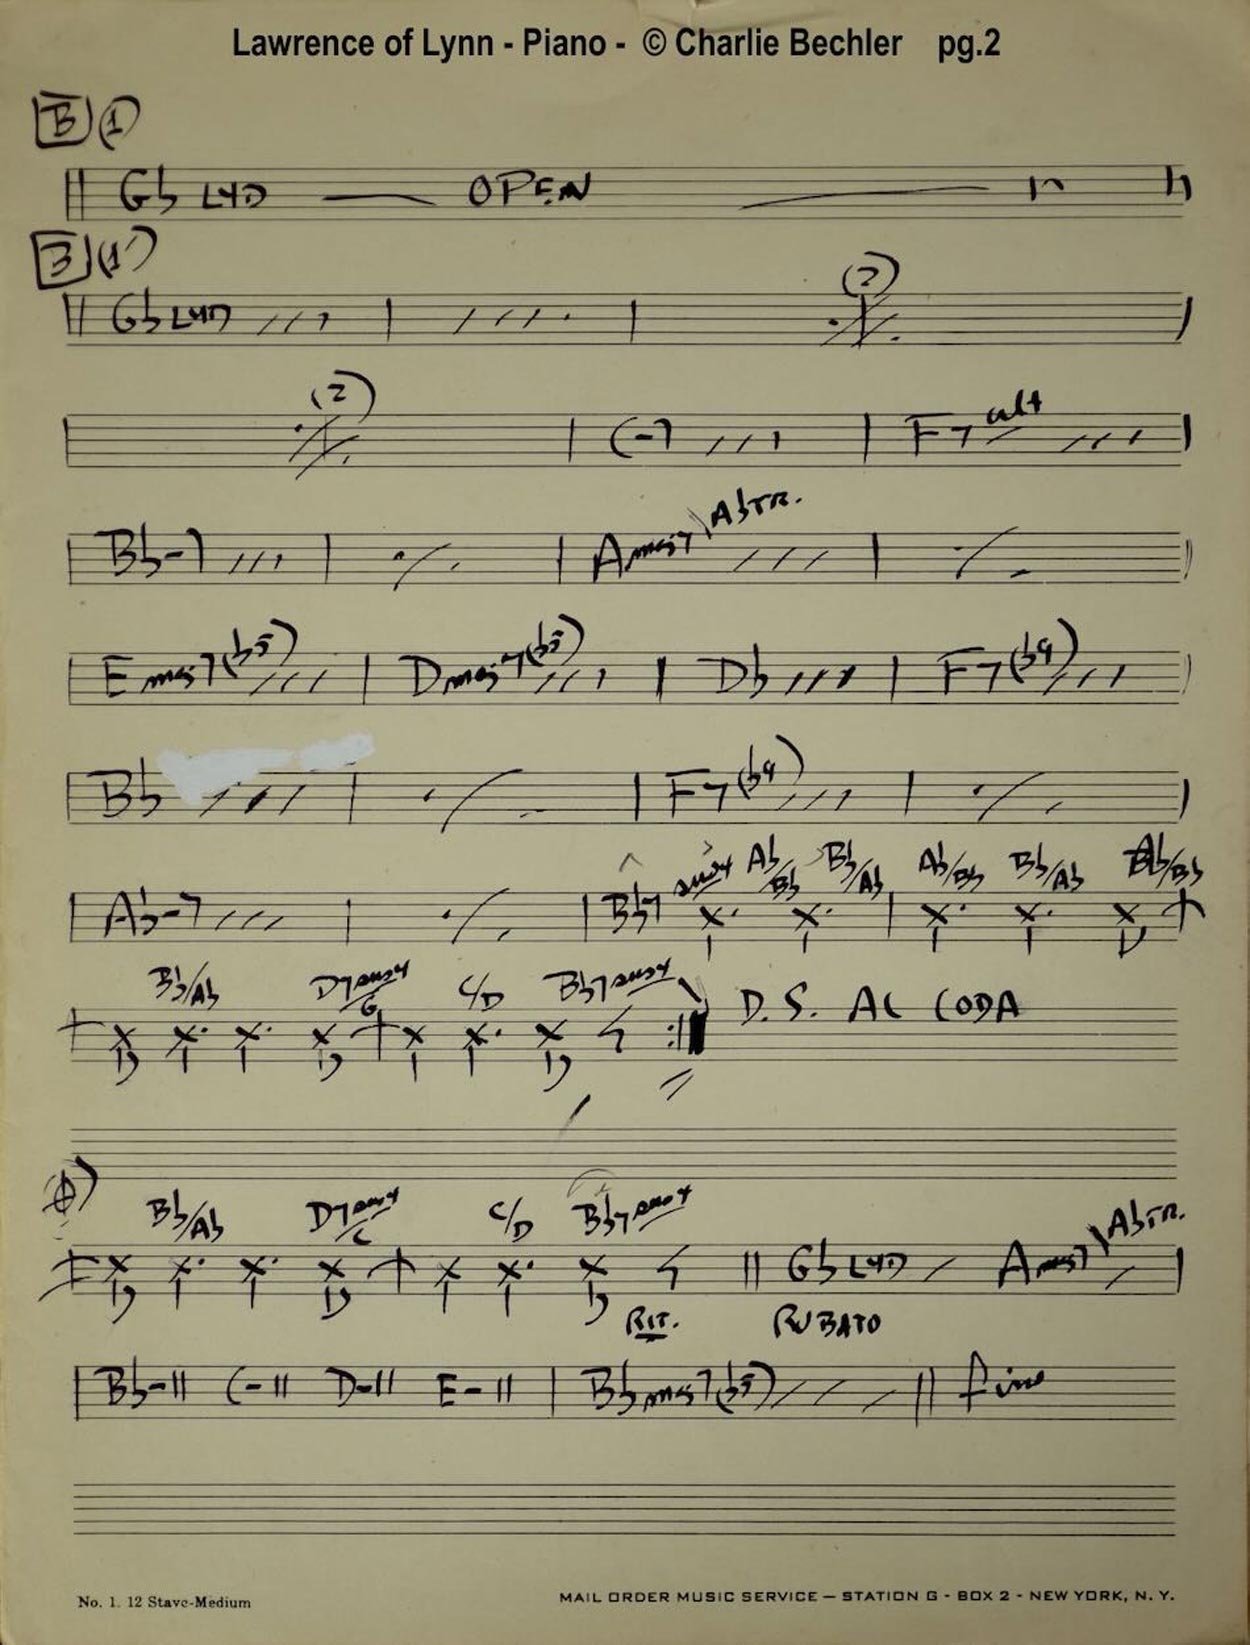 Lawrence of Lynn - Piano - © Charlie Bechler pg.2
B (1)
Gb LYD OPEN
B (1')
Gb LYD (2)
(2) C-7 F7 alt
Bb-7 Amaj7 AbTR.
Emaj7(b5) Dmaj7(b5) Db F7(b9)
Bb F7(b9)
Ab-7 Bb7 sus4 Ab/Bb Bb/Ab Ab/Bb Bb/Ab Ab/Bb
Bb/Ab D7sus4 C/D Bb7sus4 D.S. AL CODA
Bb/Ab D7sus4 C/D Bb7sus4 Gb LYD Amaj7 AbTR.
RIT. RUBATO
Bb-11 C-11 D-11 E-11 Bbmaj7(b5) fine
No. 1. 12 Stave-Medium MAIL ORDER MUSIC SERVICE — STATION G - BOX 2 - NEW YORK, N. Y.